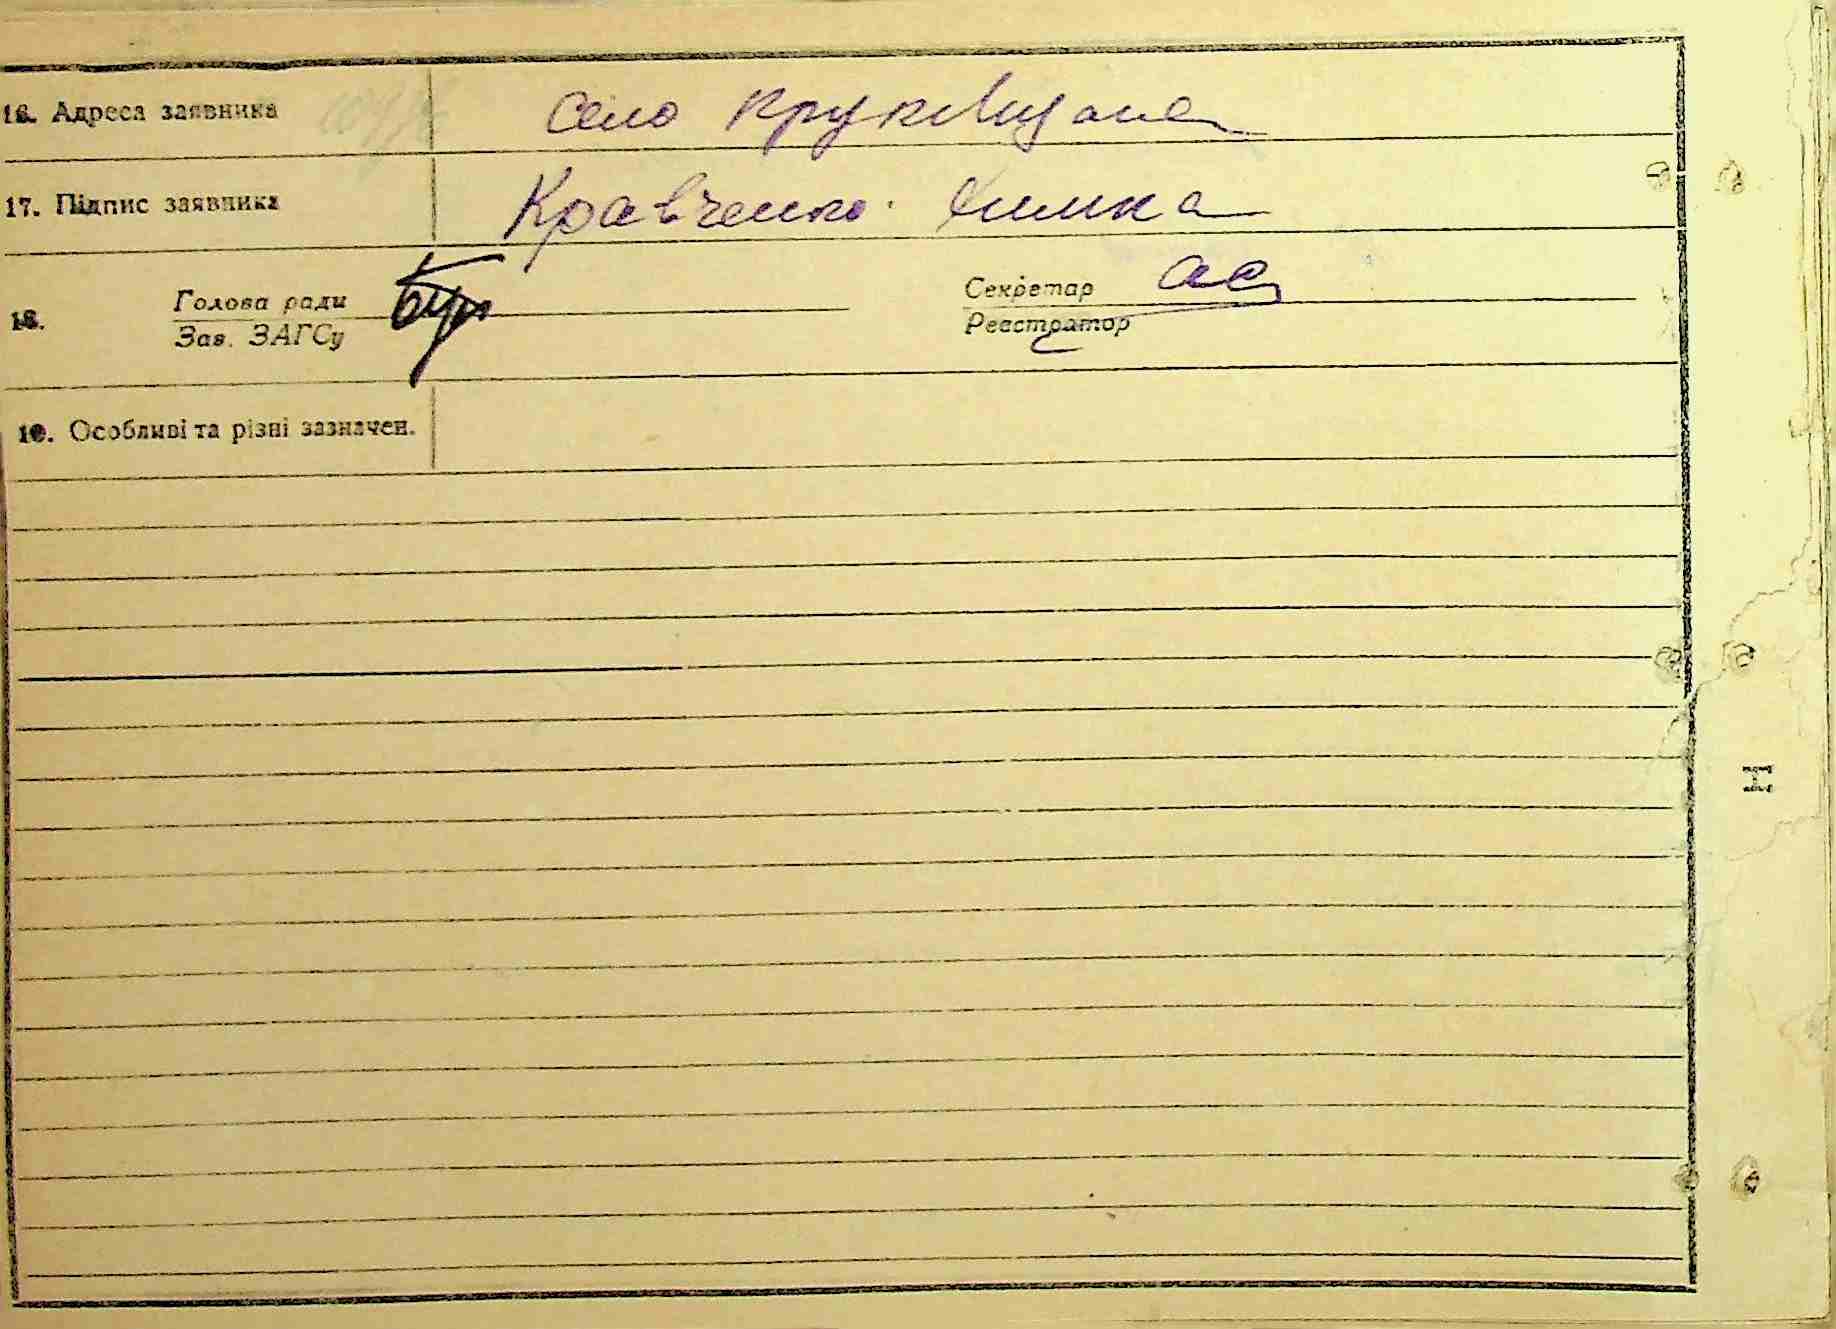 16. Адреса заявника Село Круківщана
17. Підпис заявника Кравченко Химка
18. Голова ради Секретар
Зав. ЗАГСу Реєстратор
19. Особливі та різні зазначен.